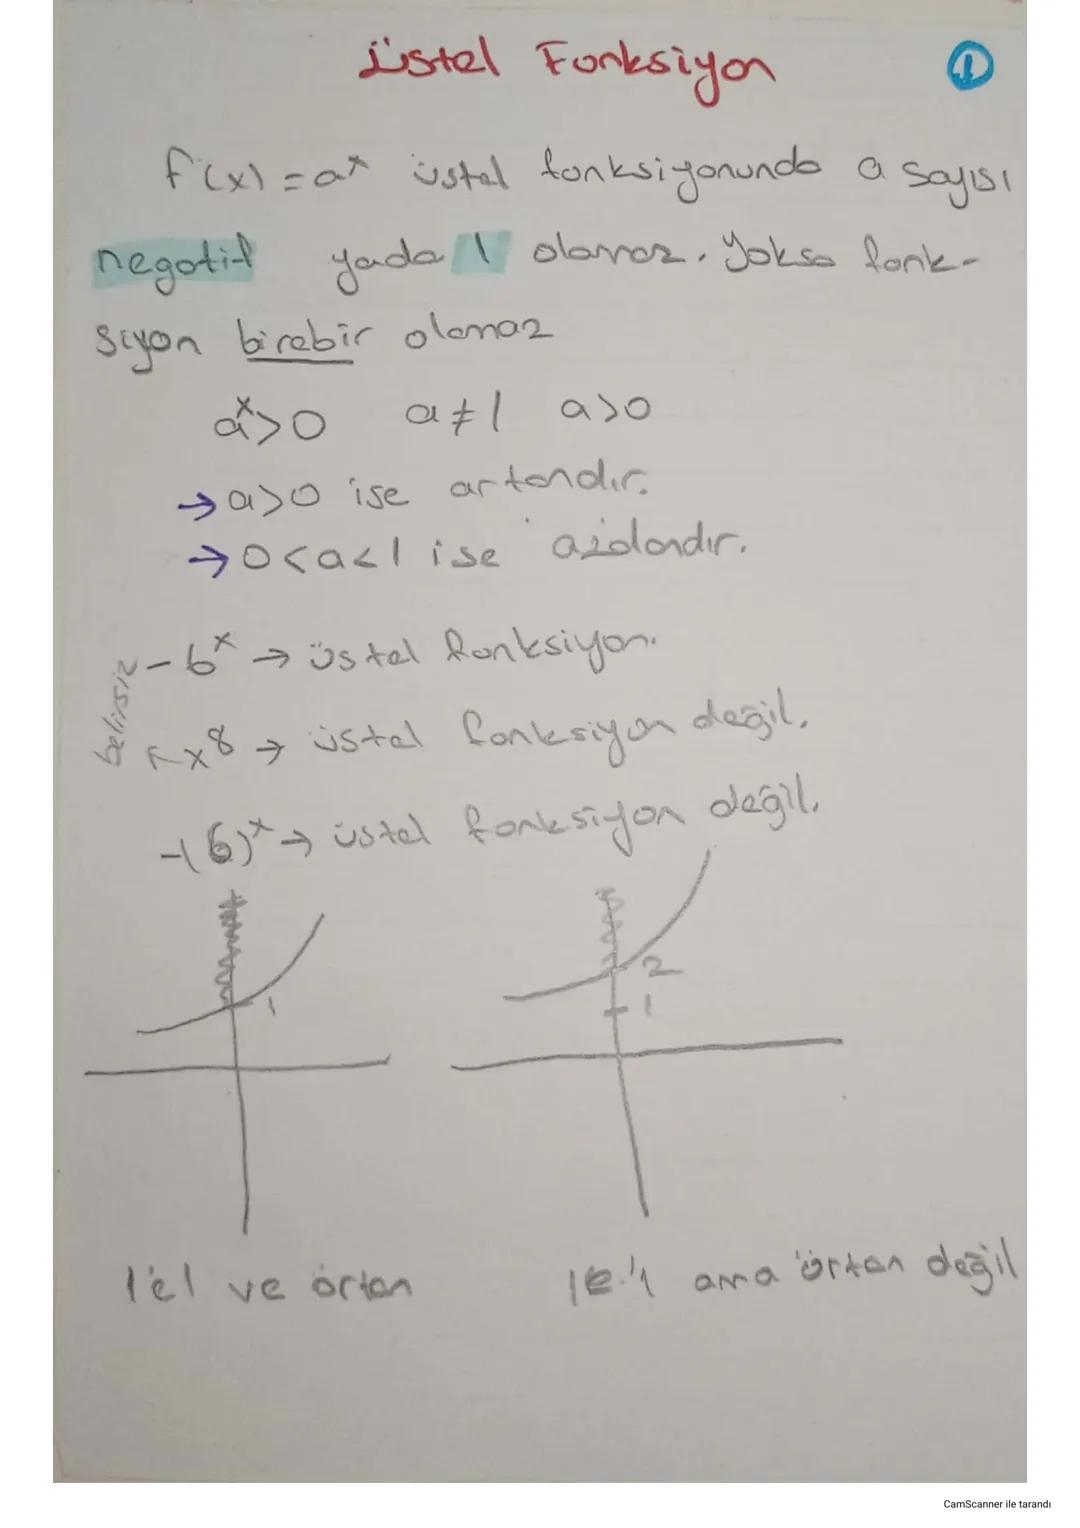 üstel Fonksiyon
1
f(x) = aˣ üstel fonksiyonunda a sayısı
negatif yada 1 olamaz. Yoksa fonk-
siyon birebir olamaz
aˣ>0 a≠1 a>0
→ a>0 ise artandır.
→ 0<a<1 ise azalandır.
belirsiz
-6ˣ → üstel fonksiyon.
x⁸ → üstel fonksiyon değil.
-(6)ˣ → üstel fonksiyon değil.
1
2
1
1'e1 ve örten
1e'1 ama örten değil
CamScanner ile tarandı